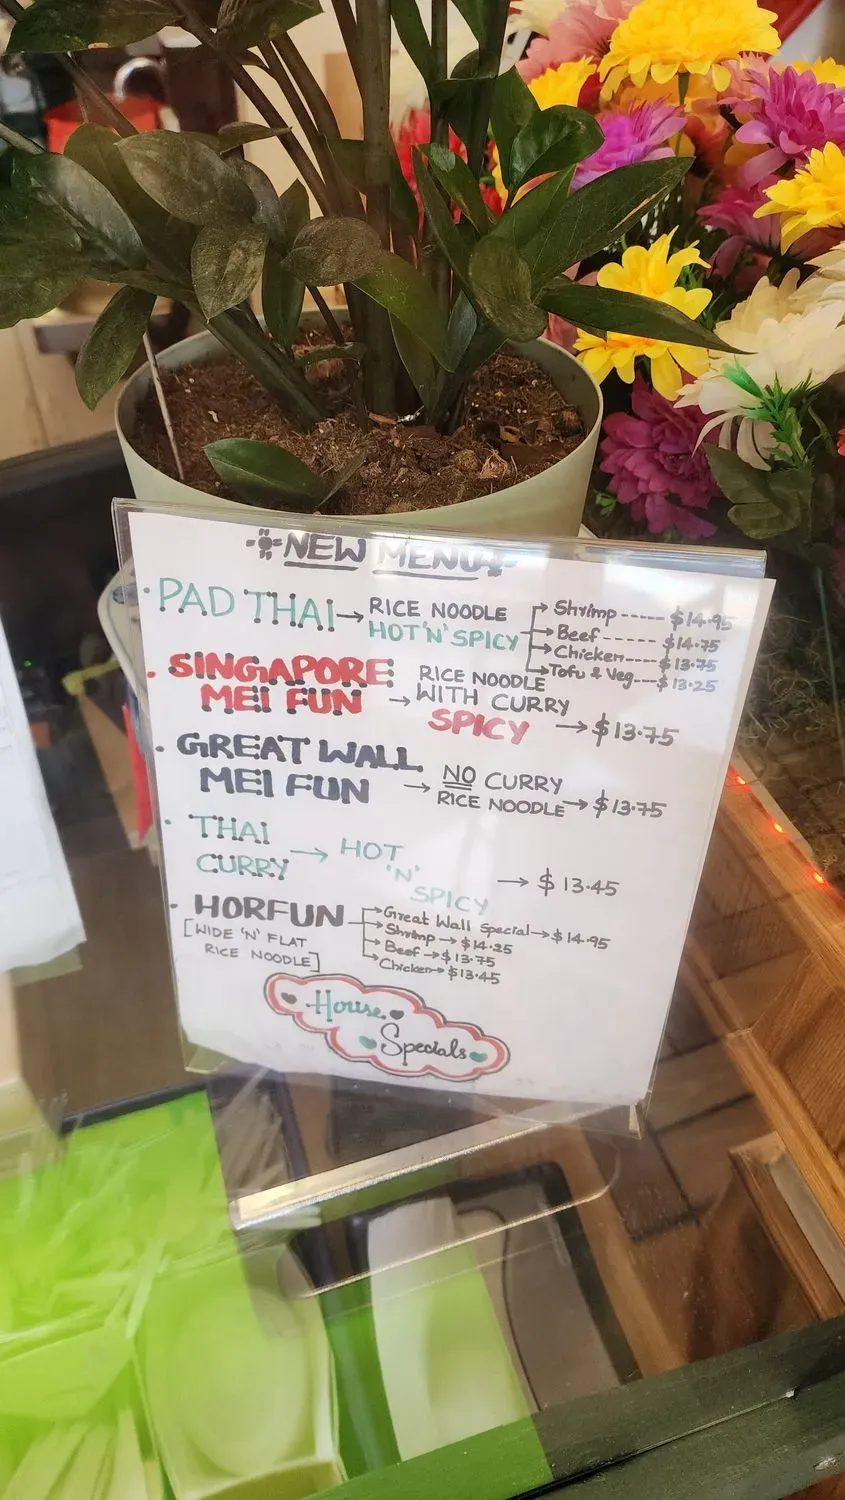 NEW MENU
· PAD THAI → RICE NOODLE
HOT 'N' SPICY
→ Shrimp ----- $14.95
→ Beef ------ $14.75
→ Chicken ---- $13.75
→ Tofu & Veg --- $13.25
· SINGAPORE
MEI FUN → RICE NOODLE
WITH CURRY
SPICY → $13.75
· GREAT WALL
MEI FUN → NO CURRY
RICE NOODLE → $13.75
· THAI
CURRY → HOT
'N'
SPICY → $13.45
· HORFUN
[WIDE 'N' FLAT
RICE NOODLE]
→ Great Wall Special → $14.95
→ Shrimp → $14.25
→ Beef → $13.75
→ Chicken → $13.45
House
Specials